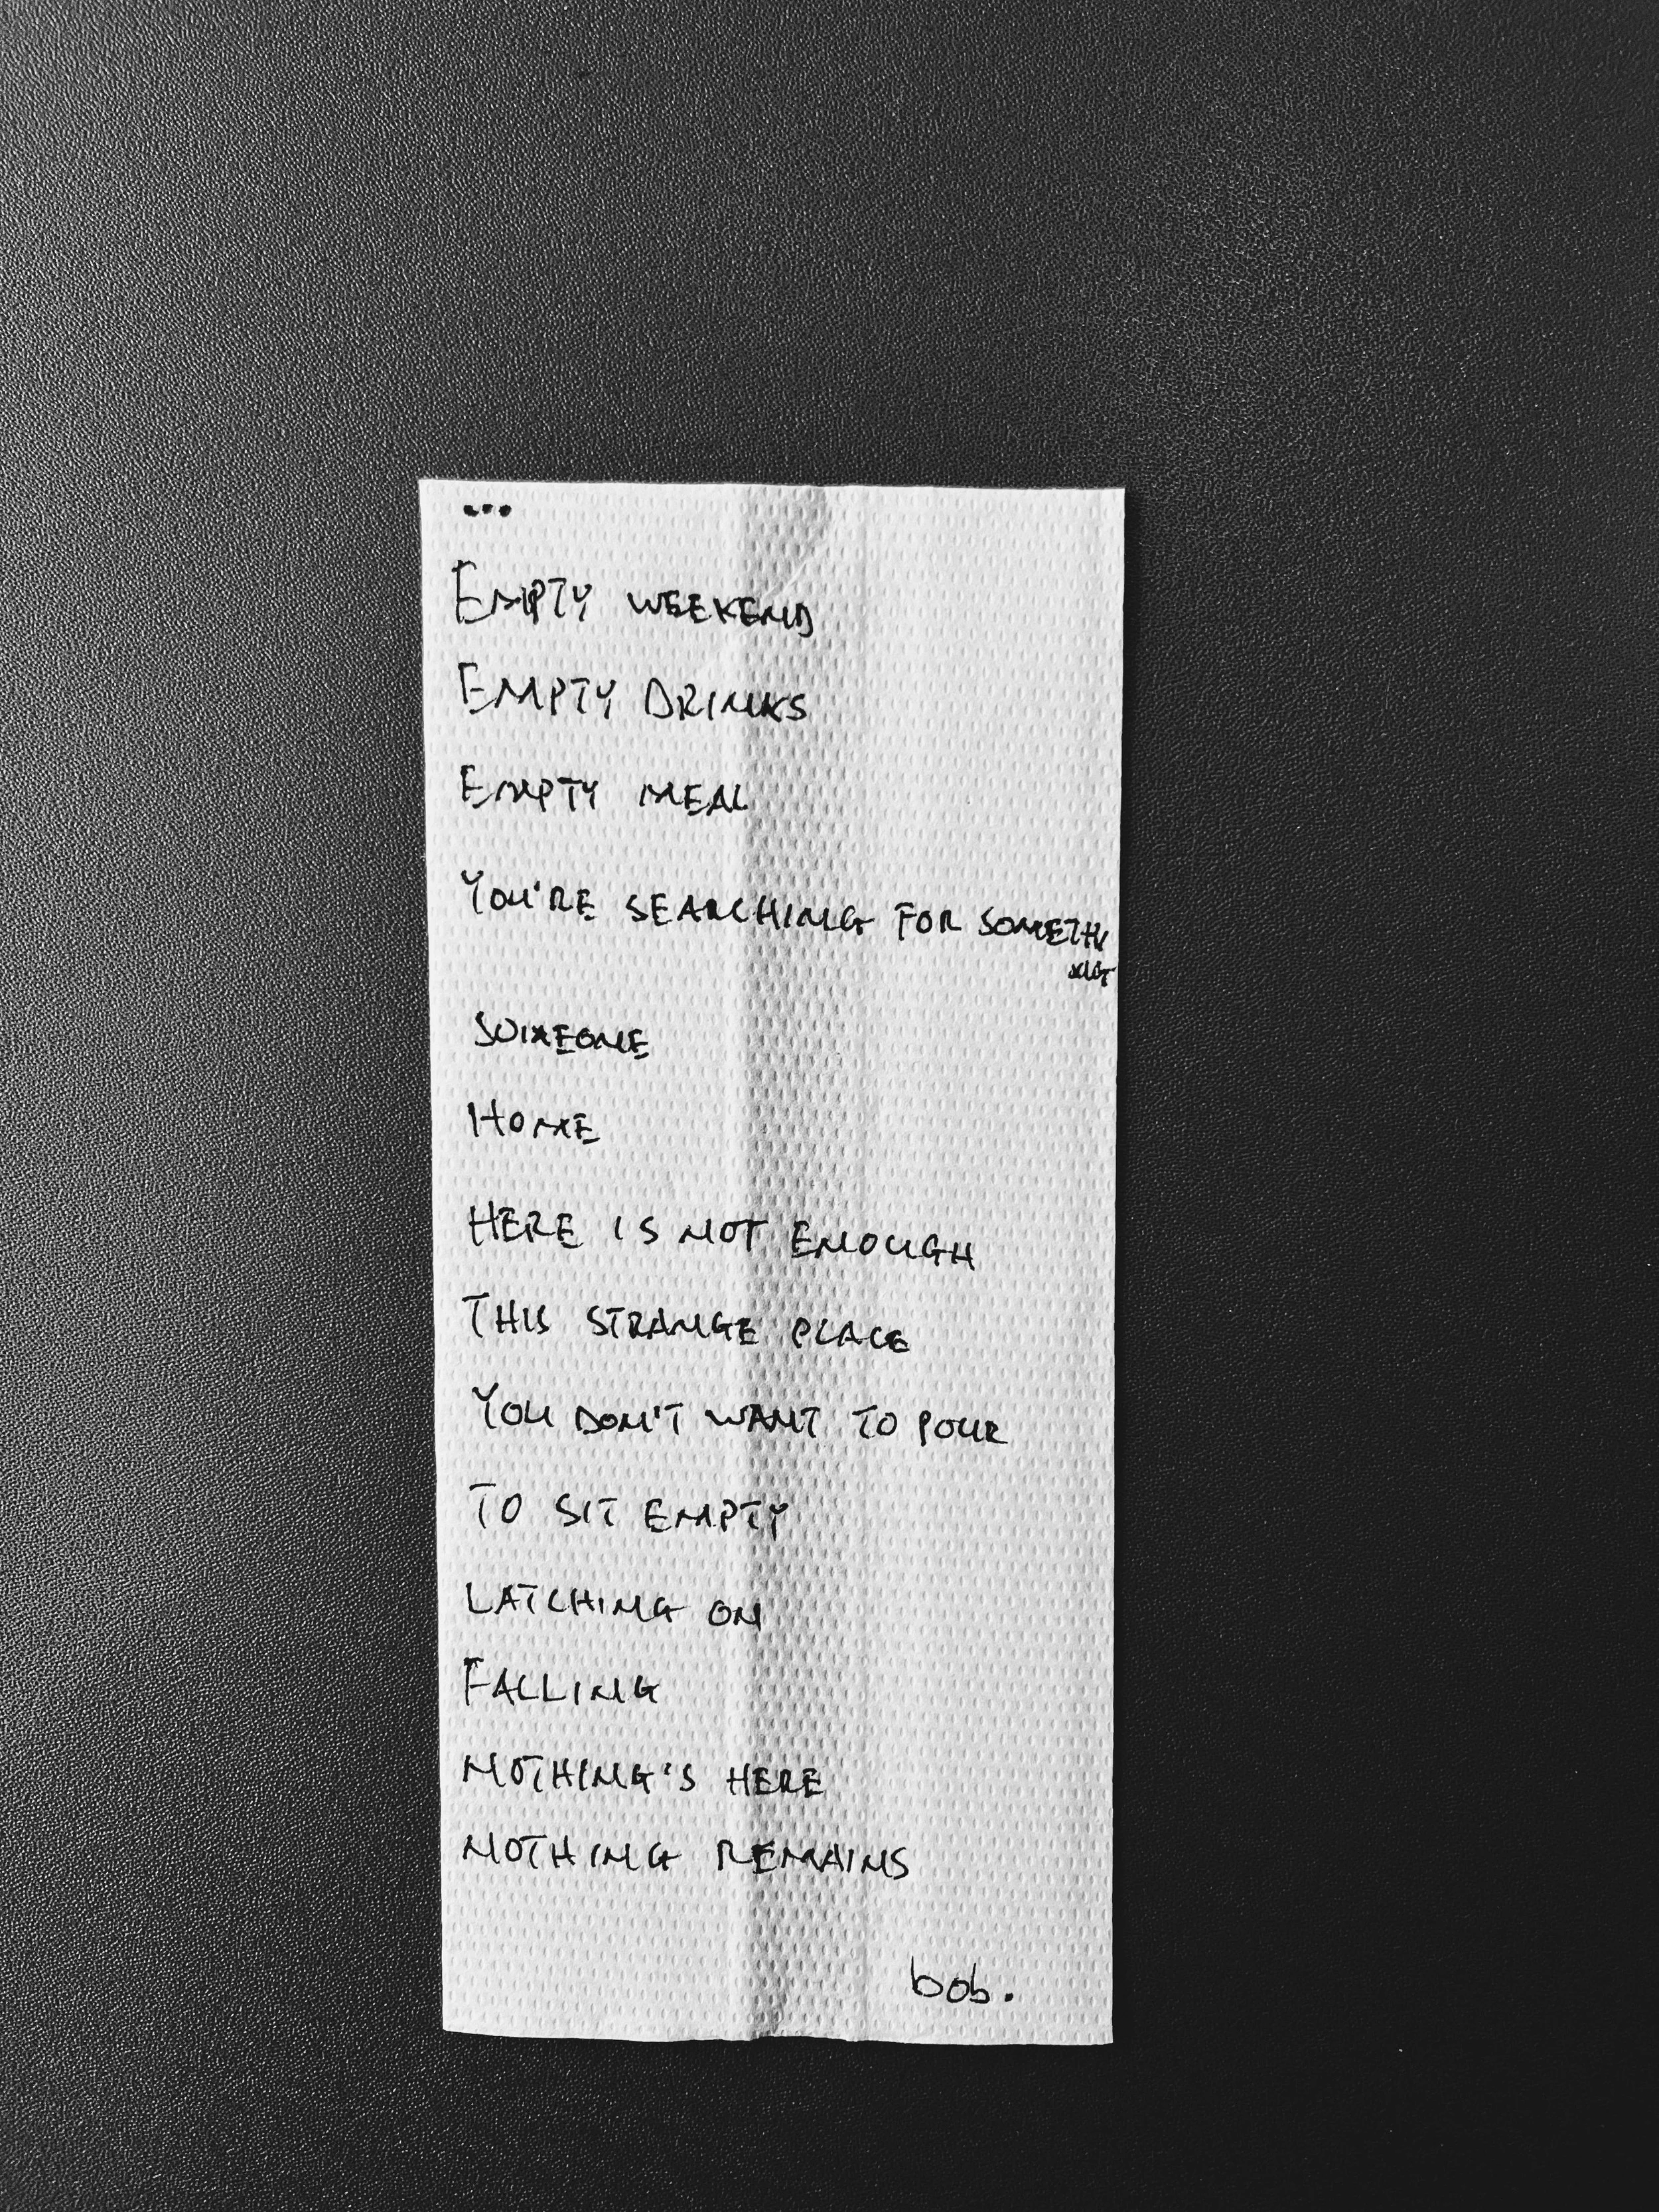 ...
EMPTY WEEKEND
EMPTY DRINKS
EMPTY MEAL
YOU'RE SEARCHING FOR SOMETHI
NG
SOMEONE
HOME
HERE IS NOT ENOUGH
THIS STRANGE PLACE
YOU DON'T WANT TO POUR
TO SIT EMPTY
LATCHING ON
FALLING
NOTHING'S HERE
NOTHING REMAINS
bob.